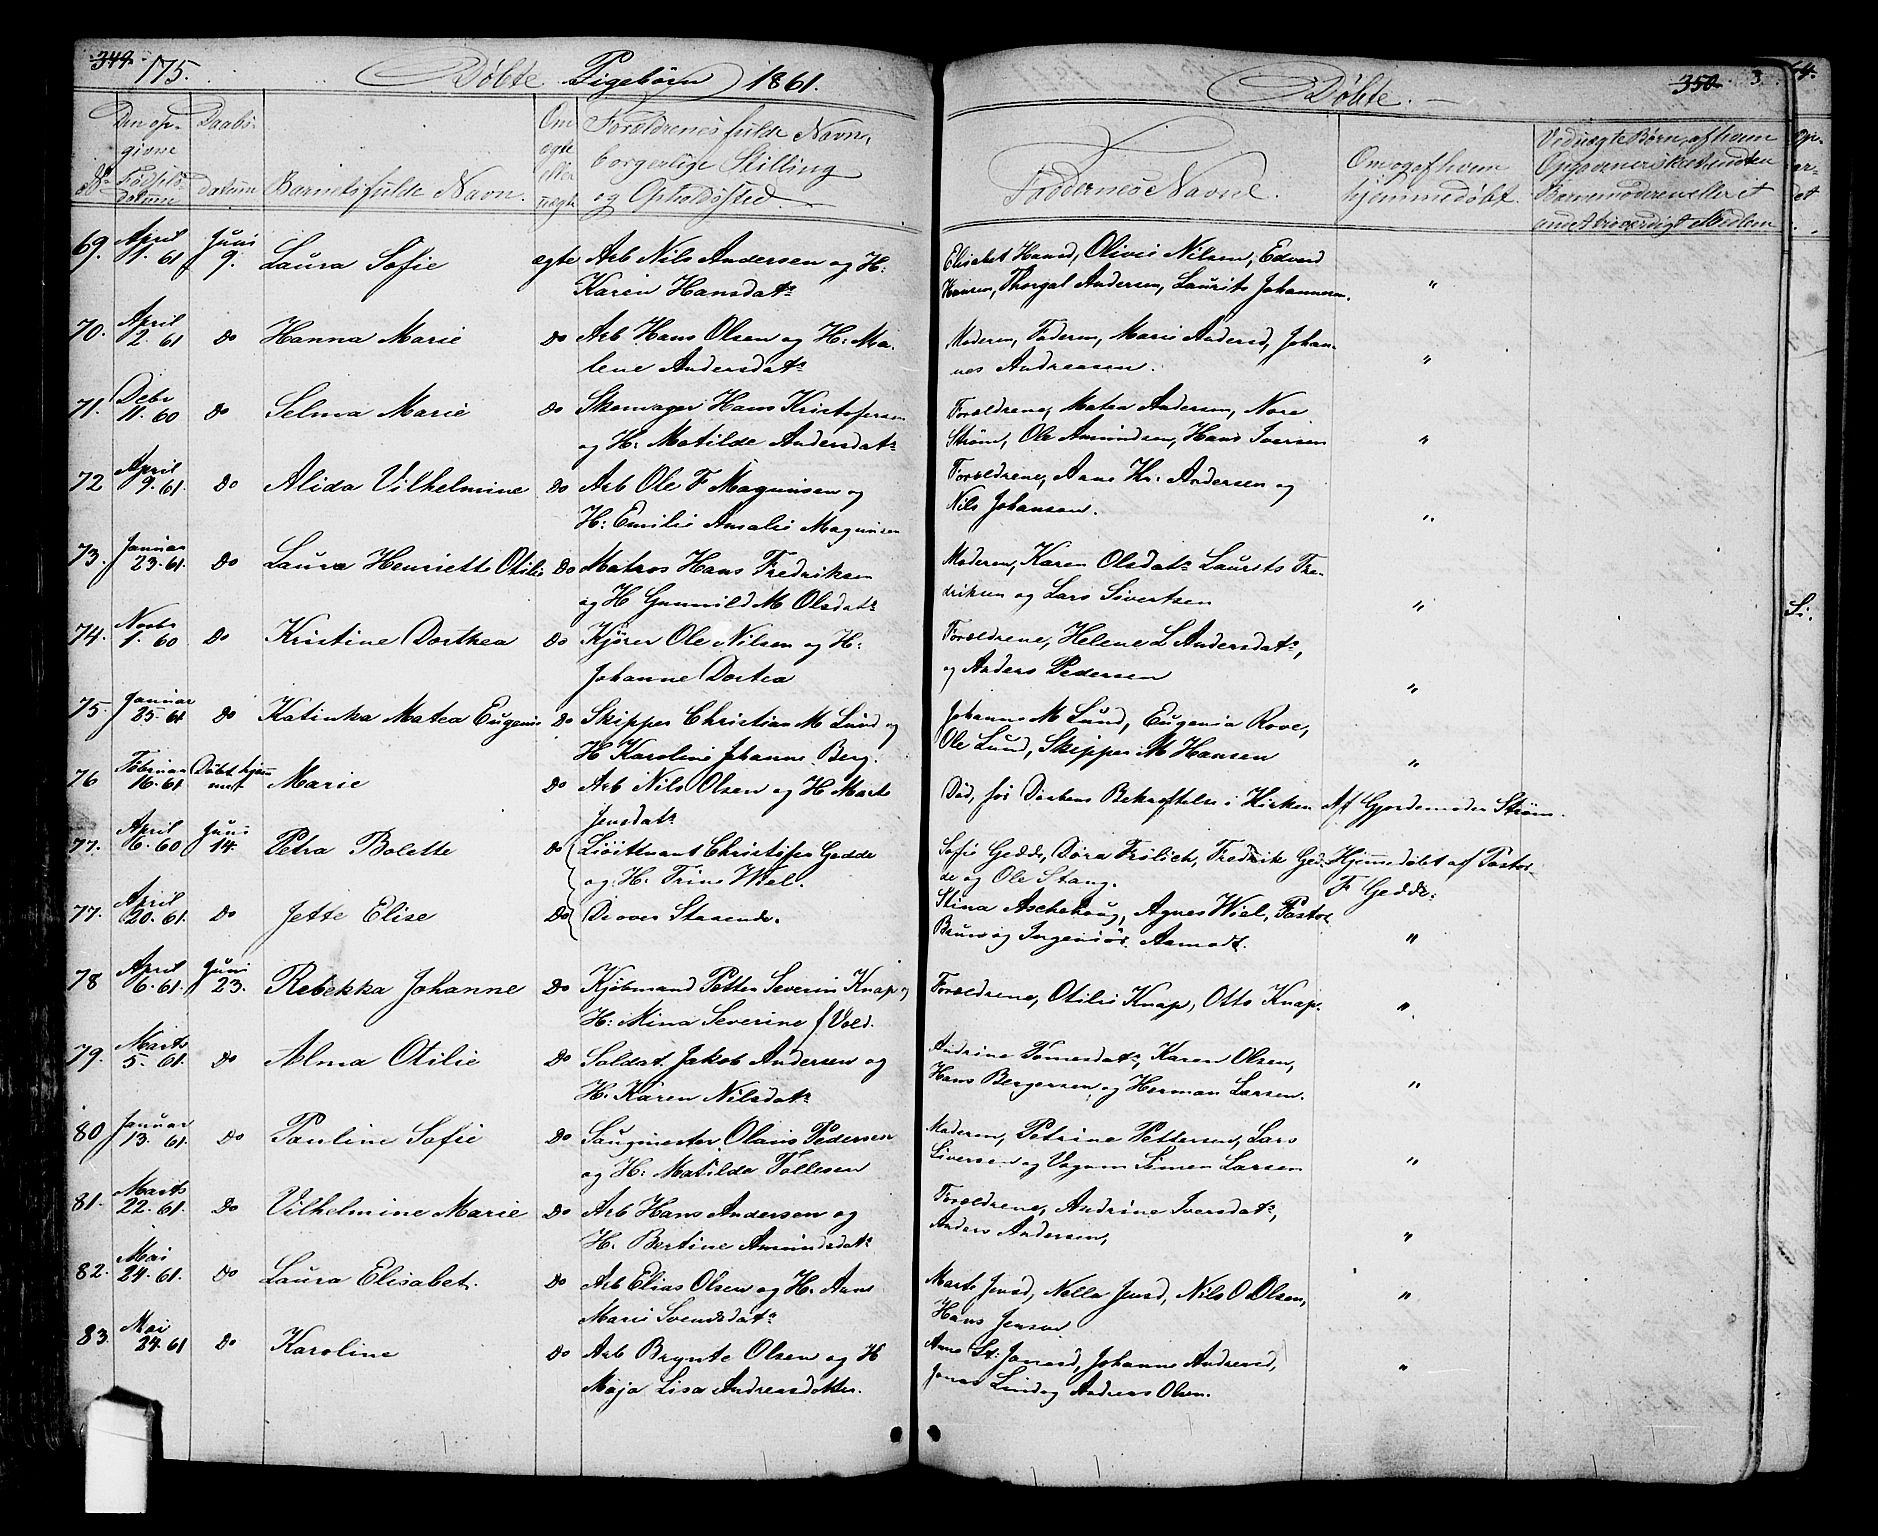 349. 175. Döbte Pigebörn 1861.
Döbte. 350
No Den opgivne Födselsdatum
Daabsdatum
Barnets fulde Navn.
Om ægte eller uægte
Forældrenes fulde Navn, borgerlige Stilling og Opholdssted.
Faddernes Navne.
Om og af hvem hjemmedöbt.
69. April 1. 61 Juni 9. Laura Sofie ægte Arb Nils Andersen og H:
Karen Hansdatr
Elisabet Hansd, Olivie Nilsen, Edvard
Hansen, Thorgal Andersen, Laurits Johannesen. "
70. April 2. 61 Do Hanna Marie Do Arb Hans Olsen og H: Ma-
lene Andersdatr
Moderen, Faderen, Marie Andersd, Johan-
nes Andreasen. "
71. Debr 11. 60 Do Selma Marie Do Skomager Hans Kristofersen
og H: Matilde Andersdatr
Forældrene, Matea Andersen, Nore
Ström, Ole Amundsen, Hans Iversen "
72 April 9. 61. Do Alida Vilhelmine Do Arb Ole F Magnusen og
H: Emilie Amalie Magnusen
Forældrene, Anne Kr: Andersen og
Nils Johansen. "
73. Januar 23. 61. Do Laura Henriette Otilie Do Matros Hans Fredriksen
og H Gunnild M Olsdatr
Moderen, Karen Olsdatr Laurits Fre-
driksen og Lars Sivertsen "
74. Novbr 1. 60 Do Kristine Dorthea Do Kjörer Ole Nilsen og H:
Johanne Dortea
Forældrene, Helene L Andersdatr,
og Anders Pedersen "
75. Januar 25. 61 Do Katinka Matea Eugenie Do Skipper Christian M Lund og
H Karoline Johanne Berg.
Johanne M Lund, Eugenia Rove,
Ole Lund, Skipper M Hansen "
76 Februar 16. 61 Döbt hjemmet Marie Do Arb Nils Olsen og H Marte
Jensdatr
Död, för Daabens Bekræftelse i Kirken Af Gjordemoder Ström.
77. April 16. 60 Juni 14. Petra Bolette Do Löitenant Christofer Gedde
og H: Trine Wiel.
Sofie Gedde, Dora Frölich, Fredrik Ged-
de og Ole Stang.
Hjemmedöbt af Pastor
F Gedde.
77. April 20. 61. Do Jette Elise Do De over Staaende.
Stina Aschehoug, Agnes Wiel, Pastor
Bruun og Ingeniör Aamodt. "
78 April 6. 61. Juni 23. Rebekka Johanne Do Kjöbmand Petter Severin Knap og
H: Mina Severine f Vold.
Forældrene, Otilie Knap, Otto Knap. "
79. Marts 5. 61. Do Alma Otilie Do Soldat Jakob Andersen og
H. Karen Nilsdatr
Andrine Tomesdatr, Karen Olsen,
Hans Bergersen og Herman Larsen. "
80 Januar 13. 61. Do Pauline Sofie Do Saugmester Olaus Pedersen
og H: Matilda Tollesen
Moderen, Petrine Pettersen, Lars
Siversen og Vognm Simen Larsen "
81. Marts 22. 61. Do Vilhelmine Marie Do Arb Hans Andersen og
H. Bertine Amundsdatr
Forældrene, Andrine Iversdatr,
Anders Andersen, "
82. Mai 24. 61. Do Laura Elisabet. Do Arb Elias Olsen og H: Anne
Marie Svendsdatr
Marte Jensd, Nella Jensd, Nils O Olsen,
Hans Jensen "
83. Mai 24. 61 Do Karoline Do Arb Brynte Olsen og H
Maja Lisa Andreasdotter.
Anne St: Jonasd, Johanne Andreasd,
Jonas Lind og Andreas Olsen. "